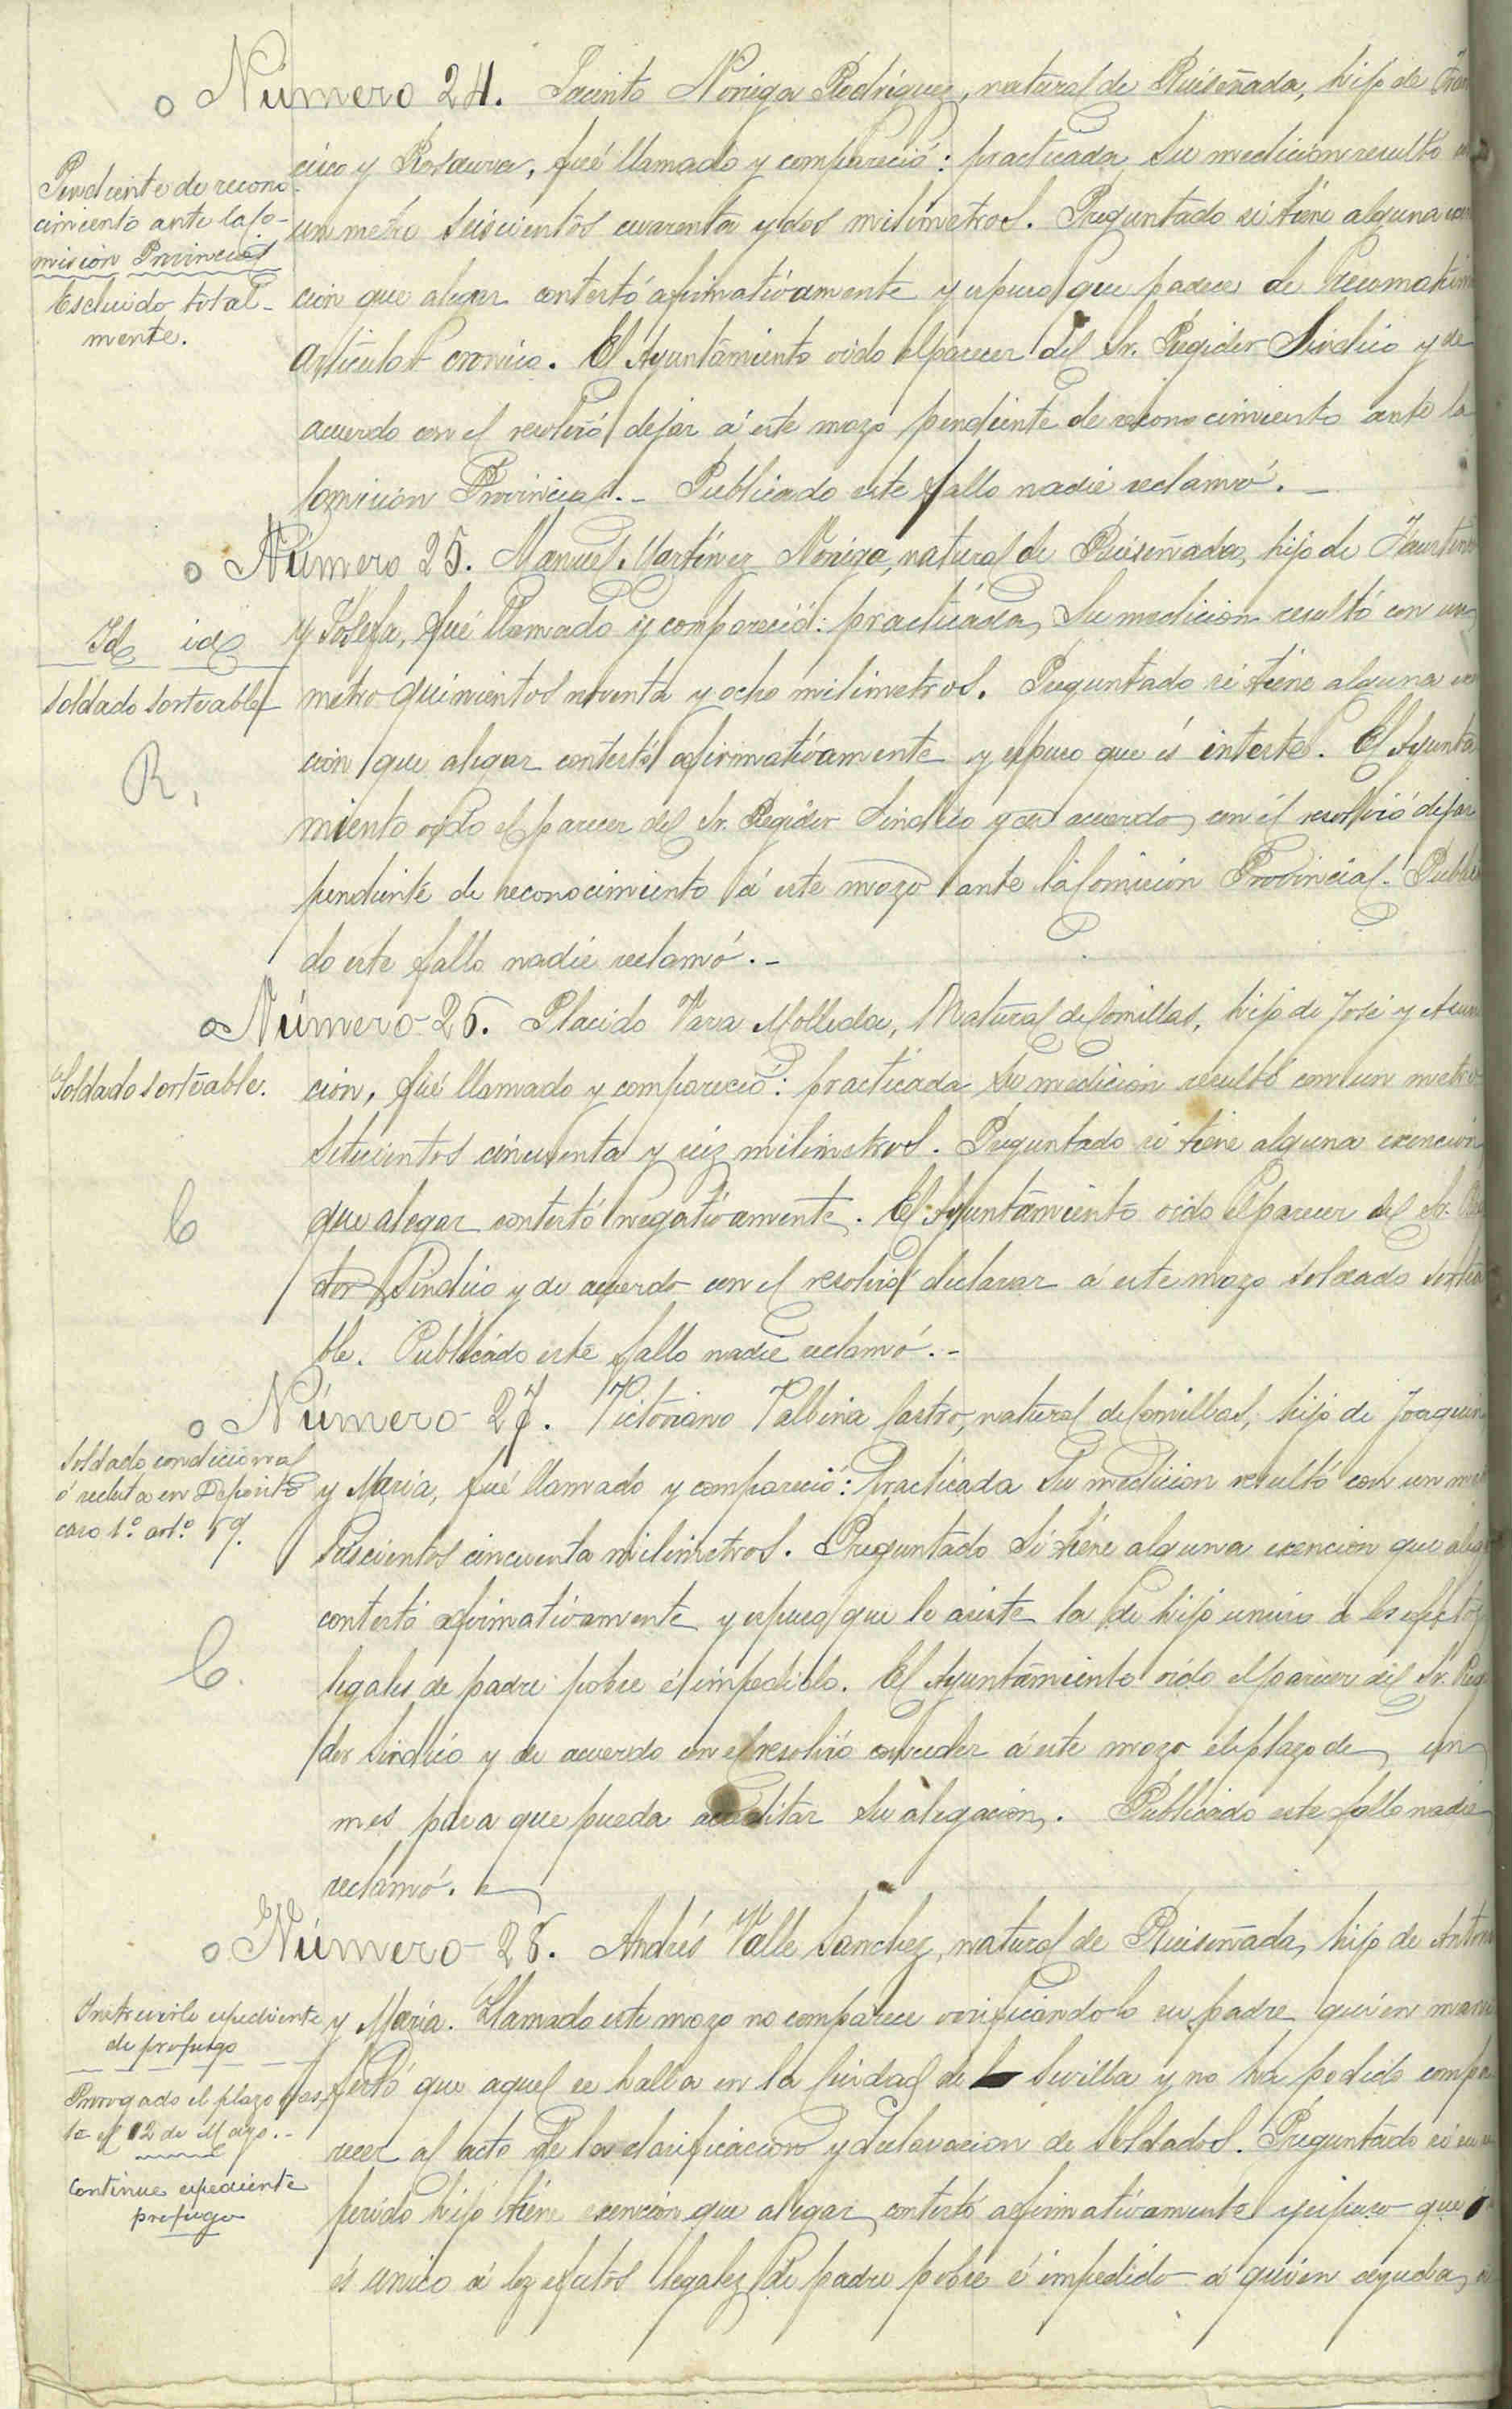 Número 24. Jacinto Noriega Rodríguez, natural de Ruiseñada, hijo de Fran
Pendiente de recono-
cimiento ante la Co-
misión Provincial
Escluido total-
mente.
cisco y Rosaura, fué llamado y compareció: practicada su medición resultó
un metro seiscientos cuarenta y dos milímetros. Preguntado si tiene alguna exen
ción que alegar contestó afirmativamente y espuso que padece de Reomatismo
articular cronico. El Ayuntamiento oido el parecer del Sr. Regidor Sindico y de
acuerdo con el resolvió dejar á este mozo pendiente de reconocimiento ante la
Comisión Provincial.- Publicado este fallo nadie reclamó.-
Número 25. Manuel Martínez Noriega, natural de Ruiseñada, hijo de Faustino
Id id
soldado sorteable
R.
y Josefa, fué llamado y compareció: practicada, su medición resultó con un
metro quinientos noventa y ocho milimetros. Preguntado si tiene alguna exen
ción que alegar contestó afirmativamente y espuso que és
El Ayunta
miento oido el parecer del Sr. Regidor Sindico y de acuerdo con él resolvió dejar
pendiente de reconocimiento á este mozo ante la Comisión Provincial.- Publica
do este fallo nadie reclamó.-
Número 26. Placido Vara Molleda, Natural de Comillas, hijo de José y Asun
Soldado sorteable.
C
ción, fué llamado y compareció: practicada su medición resultó con un metro
setecientos cincuenta y seiz milimetros. Preguntado si tiene alguna exención
que alegar contestó negativamente. El Ayuntamiento oido el parecer del Sr. Regi
dor Sindico y de acuerdo con el resolvió declarar á este mozo soldado sortea
ble. Publicado este fallo nadie reclamó.-
Número 27. Victoriano Valbina Castro, natural de Comillas, hijo de Joaquin
Soldado condicional
ó recluta en Deposito
caso 1.º art.º 69.
C.
y María, fué llamado y compareció: Practicada su medición resultó con un metro
seiscientos cincuenta milimetros. Preguntado si tiene alguna exención que alegar
contestó afirmativamente y espuso que le asiste la de hijo unico á los efectos
legales de padre pobre é impedido. El Ayuntamiento oido el parecer del Sr. Regi
dor Sindico y de acuerdo con el resolvió conceder á este mozo el plazo de un
mes para que pueda acreditar su alegación. Publicado este fallo nadie
reclamó.
Número 28. Andrés Valle Sanchez, natural de Ruiseñada, hijo de Antonio
Instruirle espediente
de profugo
Prorrogado el plazo has
ta el 12 de Mayo.-
Continue espediente
profugo
y María. Llamado este mozo no comparece verificándolo su padre quién mani
festó que aquel se halla en la Ciudad de Sevilla y no ha podido compa
recer al acto de la clasificación y declaración de soldados. Preguntado si su re
ferido hijo tiene exención que alegar, contestó afirmativamente y espuso que
és unico á loz efectos legalez de padre pobre é impedido á quién ayuda,